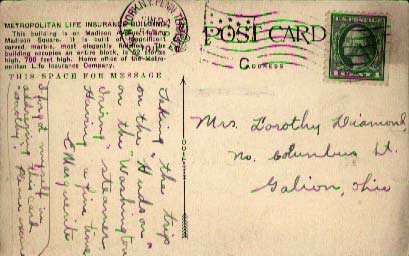 METROPOLITAN LIFE INSURANCE BUILDING
This building is on Madison
Madison Square. It is
carved marble, most elegantly finished. The
building occupies an entire block, is 50 stories
high, 700 feet high. Home office of the Metro-
politan Life Insurance Company.
THIS SPACE FOR MESSAGE
POST CARD
ADDRESS
Taking the trip
on the "Hudson"
on the "Washington
Irving" steamer.
Having a fine time
Marguerite
I forgot myself in
this card
please
Mrs. Dorothy Diamond,
No. Columbus St.
Galion, Ohio